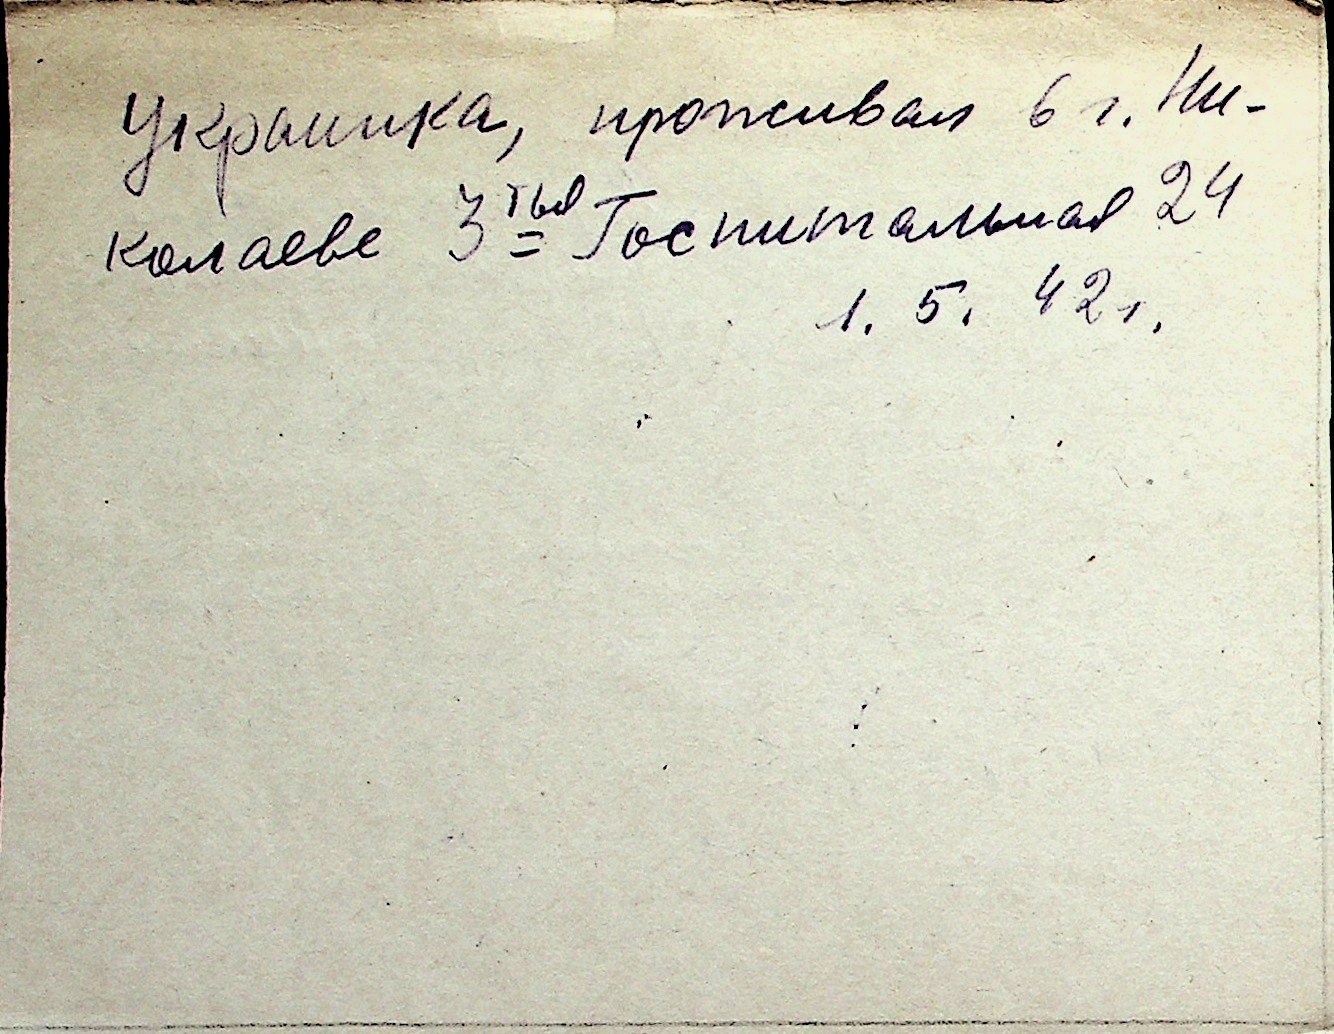 Украинка, проживал в г. Ни-
колаеве 3тья Госпитальная 24
1. 5. 42 г.